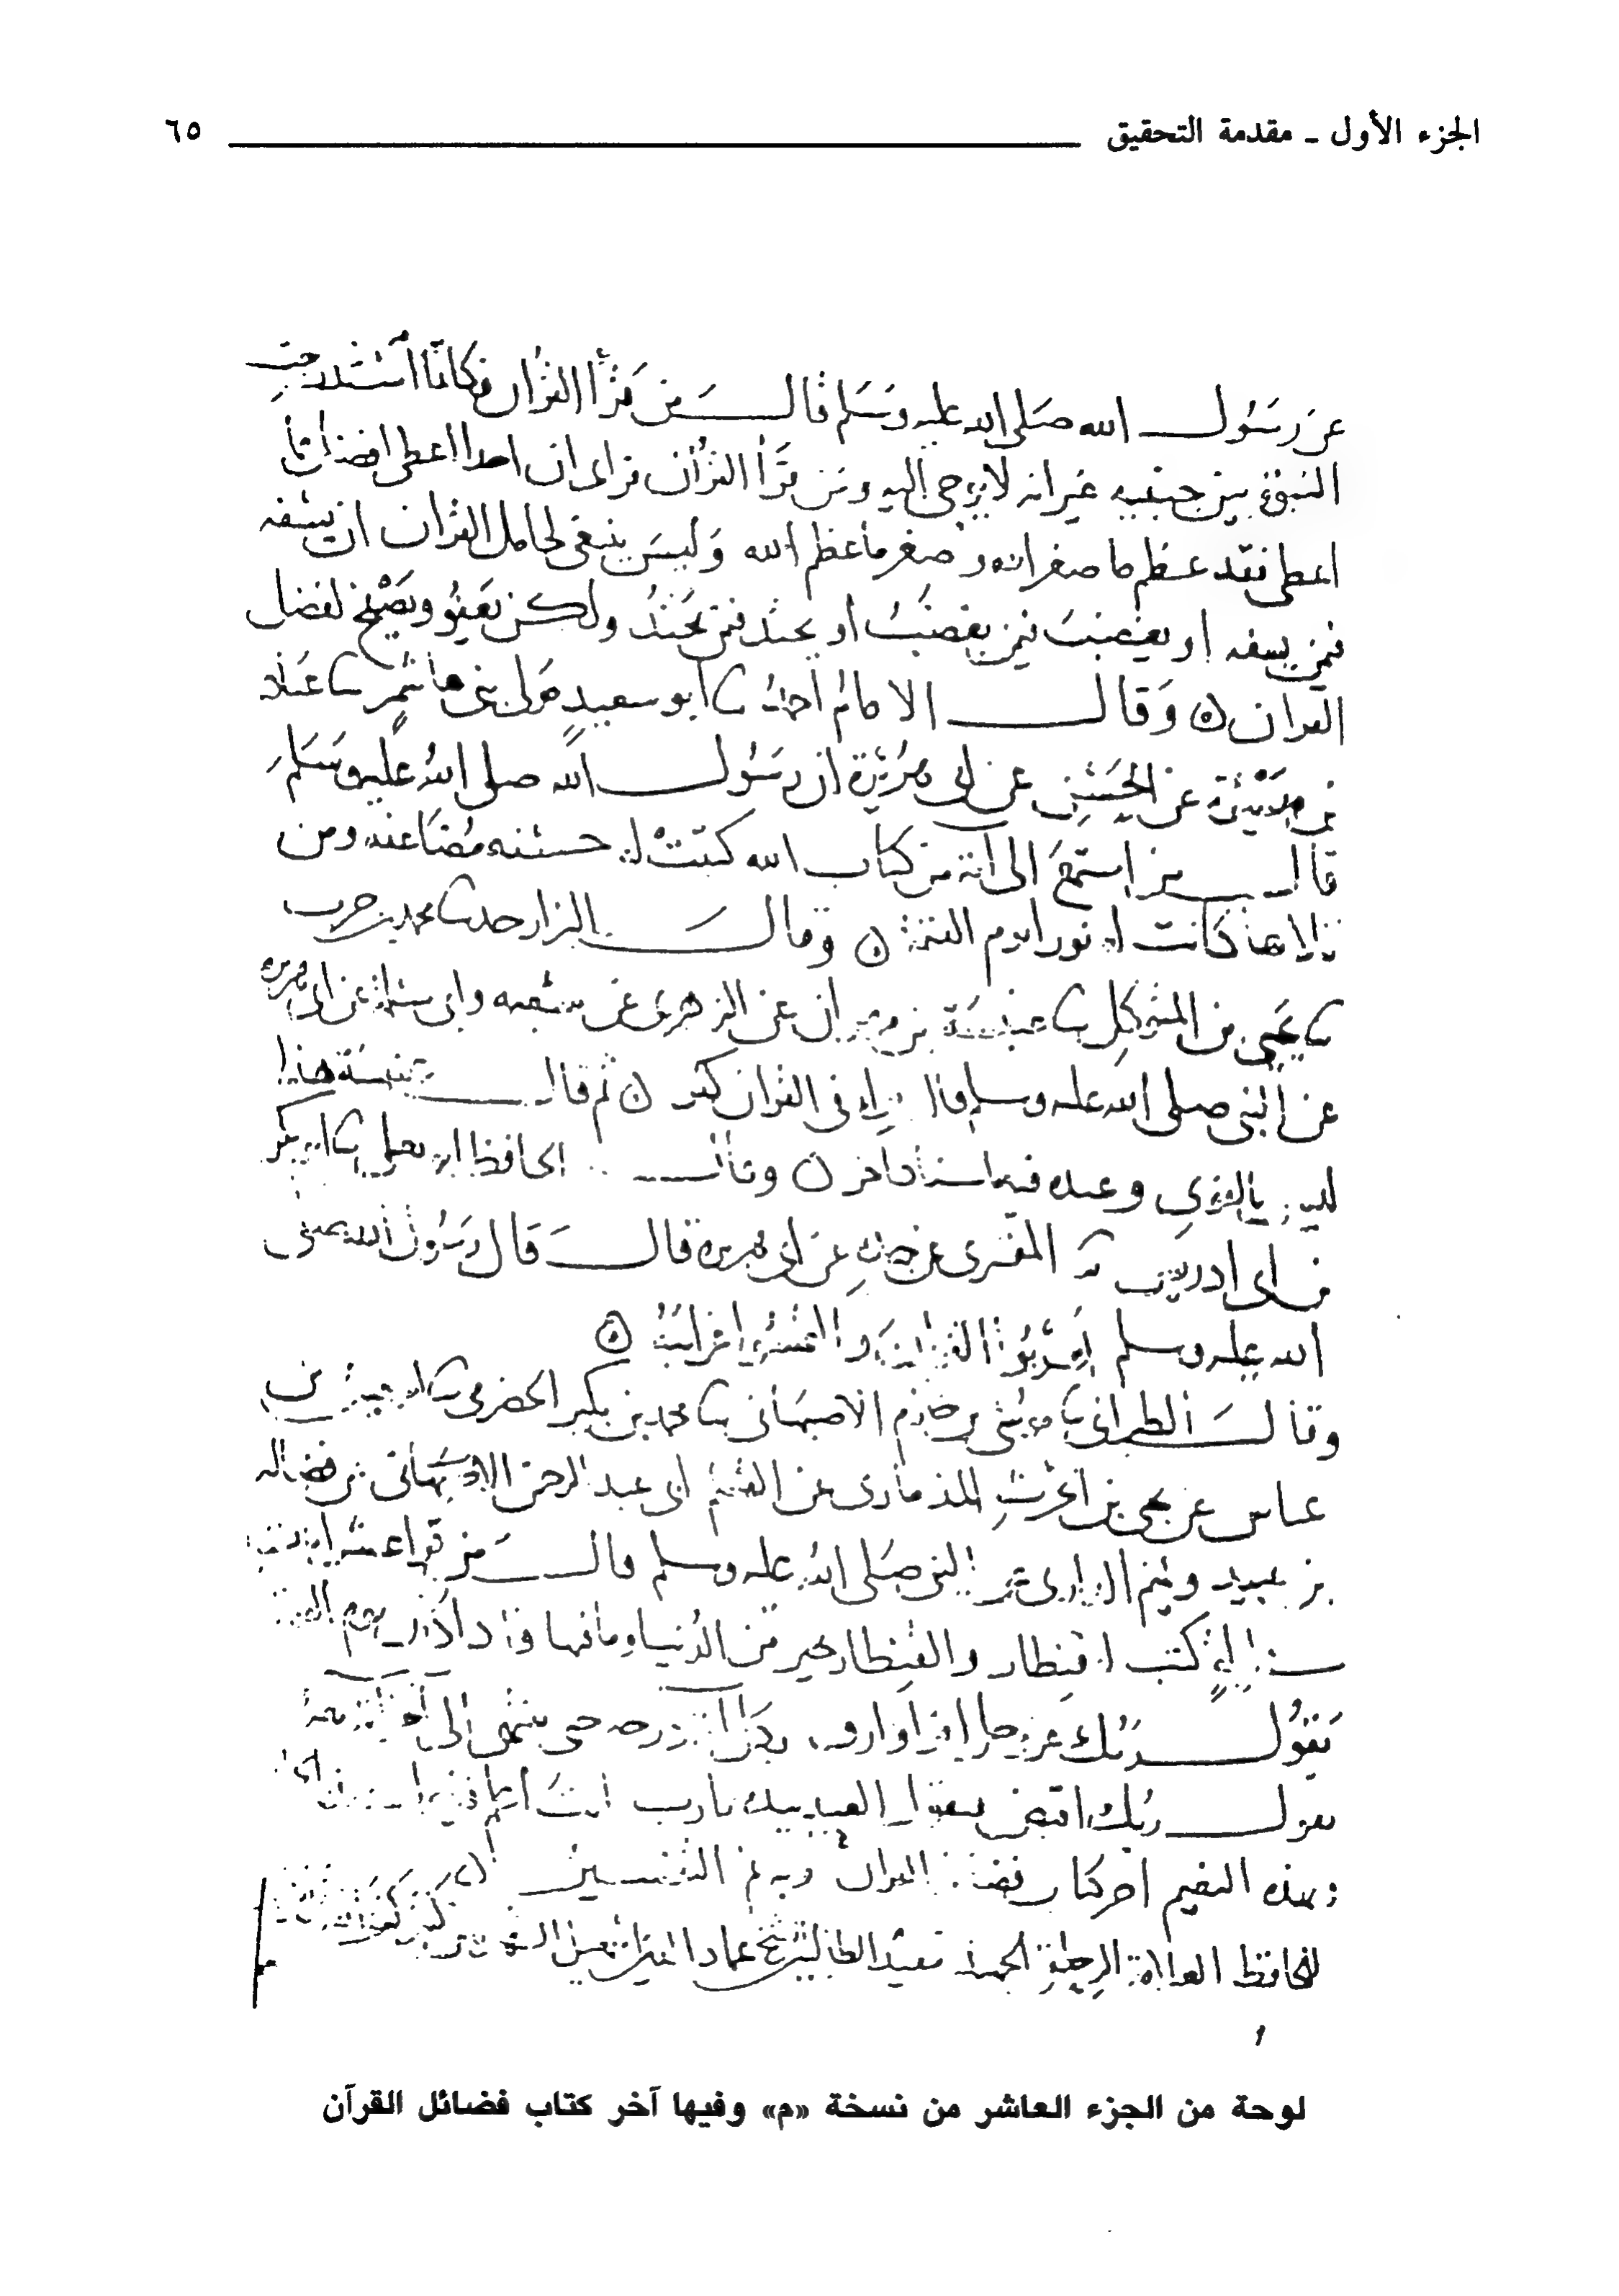 الجزء الأول ـ مقدمة التحقيق ٦٥
عن رسول الله صلى الله عليه وسلم قال من قرأ القرآن فكانما استدرجت
النبوة بين جنبيه غير انه لا يوحى اليه ومن قرأ القرآن فراى ان احدا اعطى افضل مما
اعطى فقد عظم ما صغر الله وصغر ما عظم الله وليس ينبغي لحامل القران ان يسفه
فيمن يسفه او يغضب فيمن يغضب او يحتد فيمن يحتد ولكن يعفو ويصفح لفضل
القران وقال الامام احمد ثنا ابو سعيد مولى بني هاشم ثنا عباد
بن ميسرة عن الحسن عن ابي هريرة ان رسول الله صلى الله عليه وسلم
قال من استمع الى آية من كتاب الله كتبت له حسنة مضاعفة ومن
تلاها كانت له نورا يوم القيمة وقال البزار حدثنا محمد بن حرب
ثنا يحيى بن المتوكل ثنا عنبسة بن مهران عن الزهري عن سعيد وابي سلمة عن ابي هريرة
عن النبي صلى الله عليه وسلم قال مراء في القران كفر ثم قال عنبسة هذا
ليس بالقوي وعنده فيه اسناد اخر وقال الحافظ ابو يعلى ثنا ابو بكر
بن ابي ادريس المقبري عن جده عن ابي هريرة قال قال رسول الله صلى
الله عليه وسلم اعربوا القران والتمسوا غرائبه
وقال الطبراني ثنا موسى بن حازم الاصبهاني ثنا محمد بن بكير الحضرمي ثنا اسمعيل بن
عياش عن يحيى بن الحرث الذماري عن القسم ابي عبد الرحمن عن فضالة
بن عبيد وتميم الداري عن النبي صلى الله عليه وسلم قال من قرا عشر ايات
كتب له قنطار والقنطار خير من الدنيا وما فيها فاذا كان يوم القيمة
يقول ربك عز وجل اقرا وارق بكل اية درجة حتى ينتهي الى آخر آية معه
يقول ربك اقبض فيقول العبد بيده يارب انت اعلم
النعيم اخر كتاب فضائل القران وبه تم التفسير
للحافظ العلامة الرحلة الجهبذ مفيد الطالبين الشيخ عماد الدين اسمعيل
لوحة من الجزء العاشر من نسخة «م» وفيها آخر كتاب فضائل القرآن